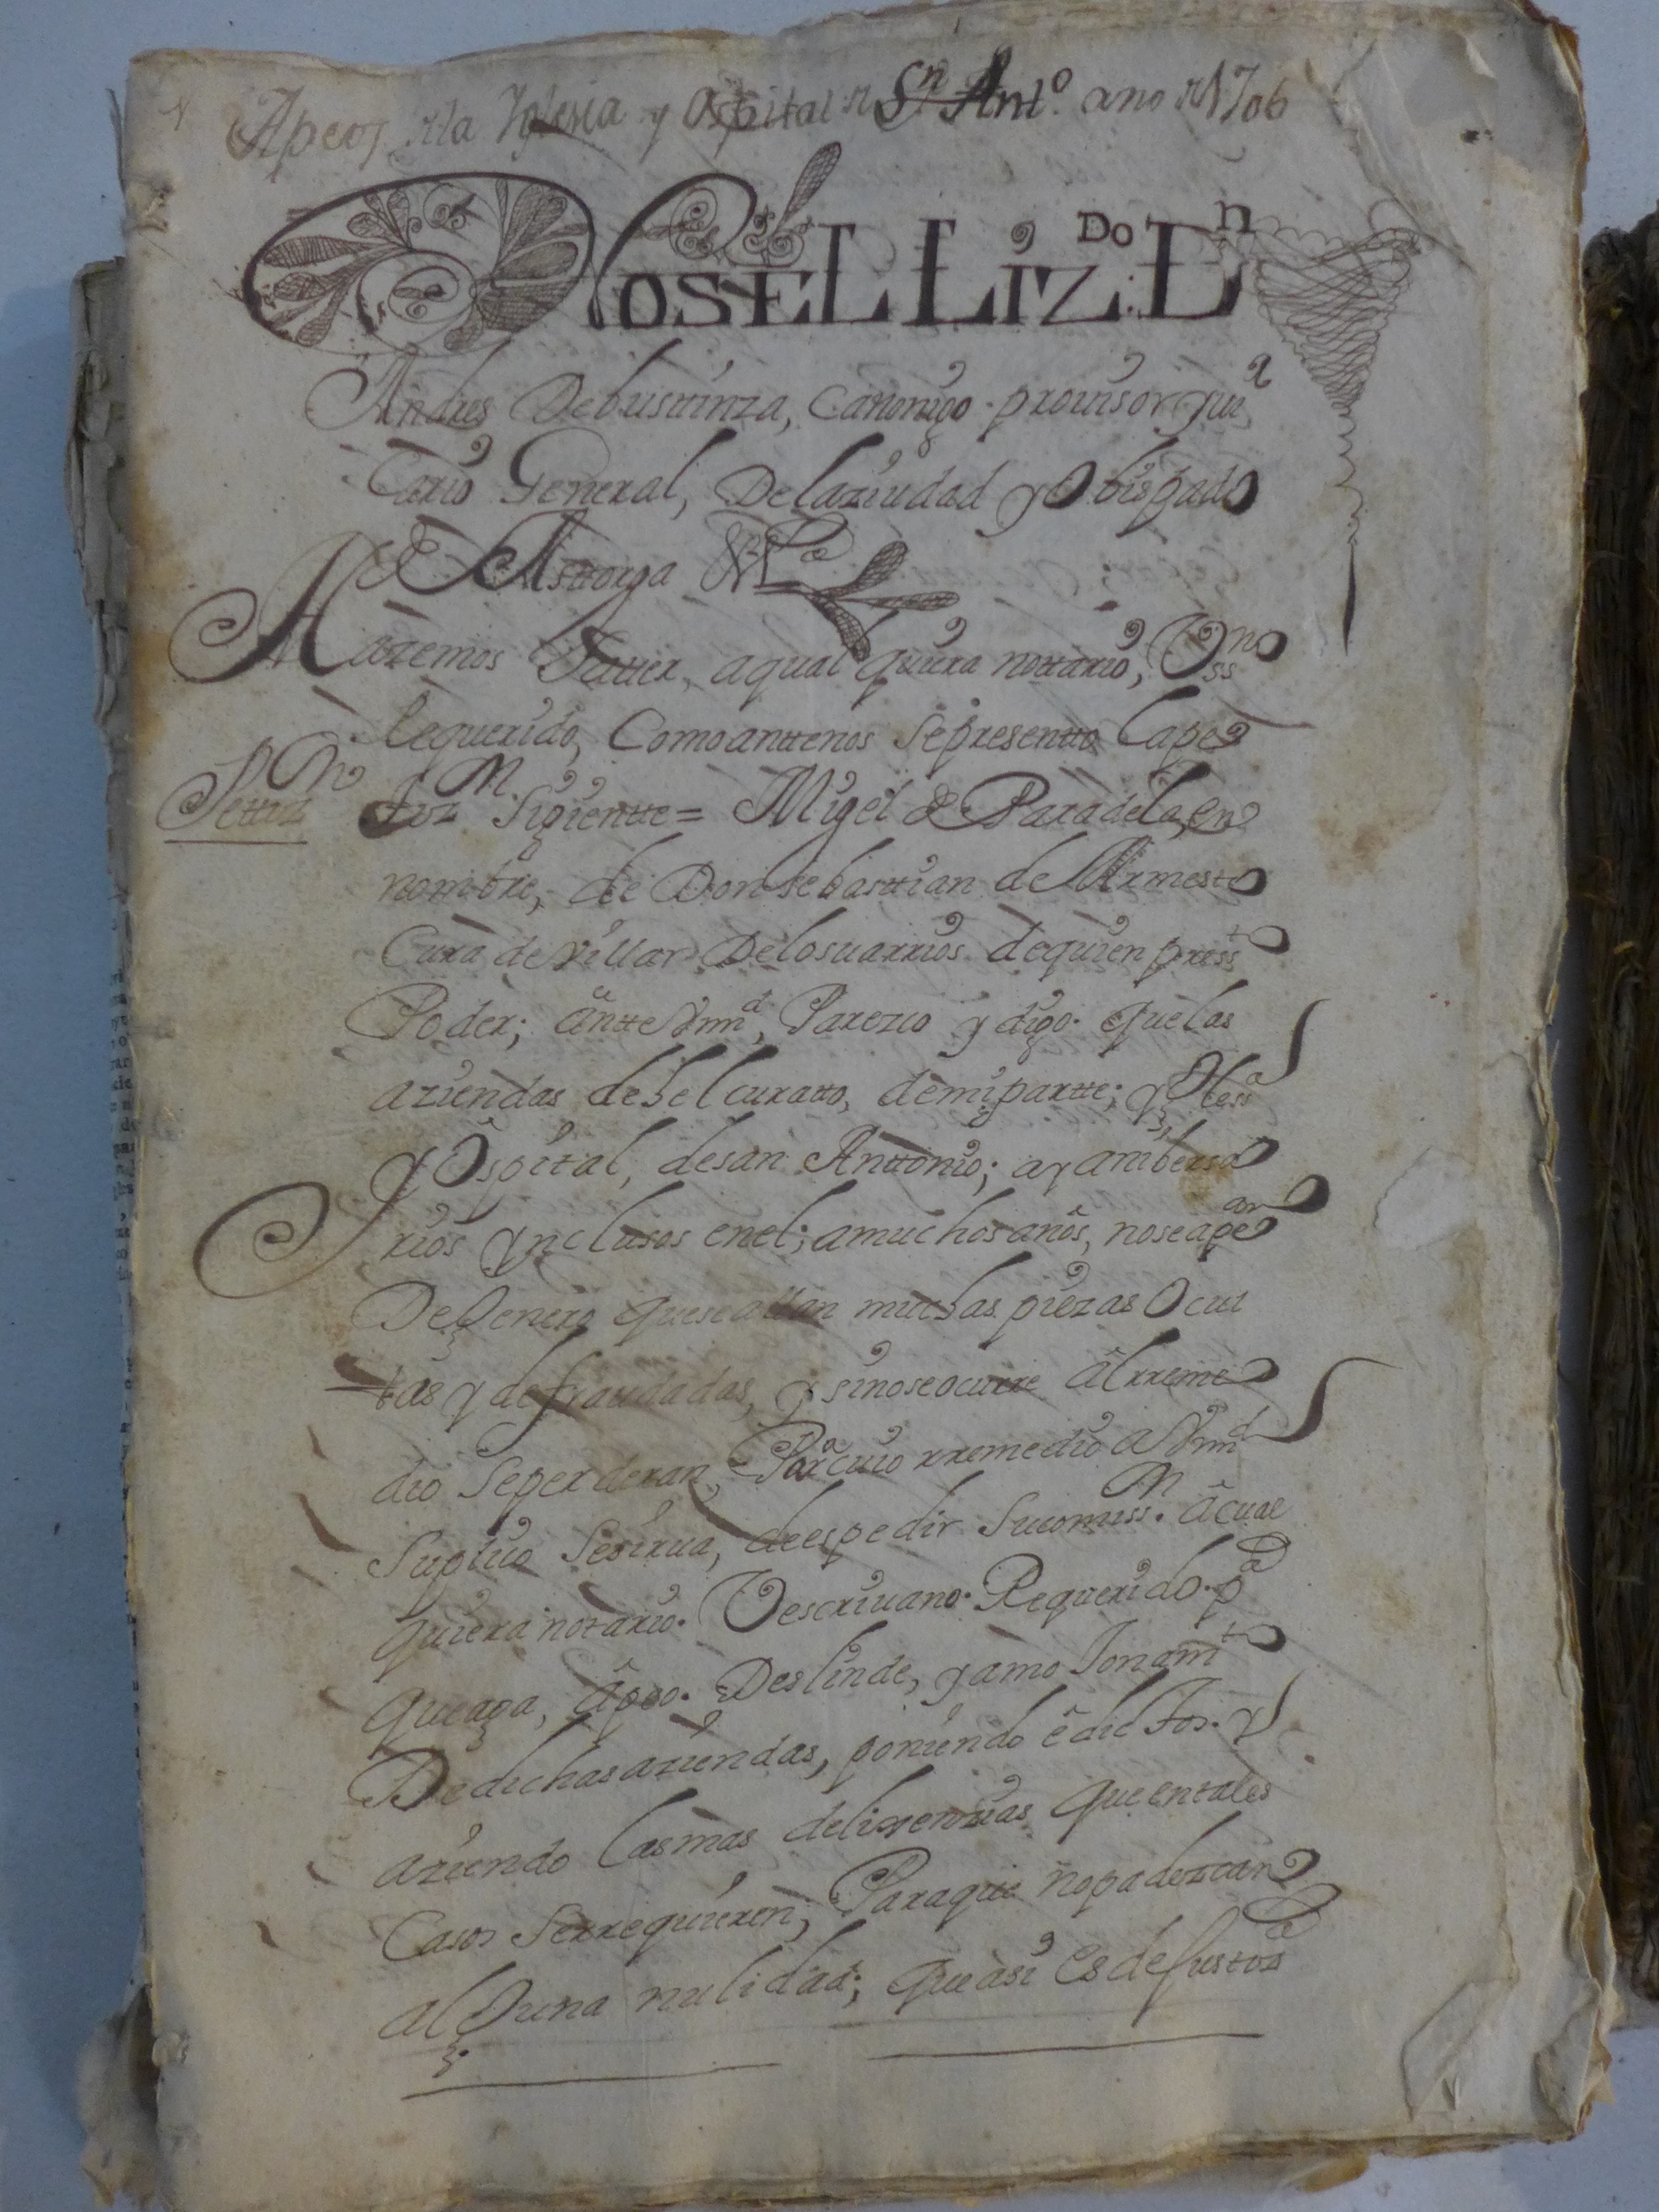 Apeos dla Yglesia y Ospital d Sn Anto. ano d 1706
NOS EL LizDo. Dn
Andres Debustinza, Canonigo. provisor y vi
Cario General, Delaziudad y Obispado
de Asttorga &a
Hazemos Saver, aqualquiera nottario, Ossno
Requerido, Como anttenos Sepresentto Lape
Pettizn
tizn. Sigientte = Migel de Paradela, en
nombre, de Don sebasttian de Armestto
Cura de Villar Delosuarrios. dequien presstto
Poder; antte Vmd, Parezco y digo. quelas
aziendas desel curatto, demipartte; yglesa
y Ospital, desan Anttonio; ay anibersa
rios ynclusos enel; amuchos años, nose apean
De Genero queseallan muchas piezas Ocul
tas y defraudadas, y sinoseocurre al rreme
dio Seperderan, Para cuio rremedio a Vmd
Suplico Sesirua, deespedir Sucomissn. acual
quiera notario. Vescriuano. Requerido. pa
queaga, apeo. Deslinde, y amo Jonamto
De dichas aziendas, poniendo edictos. y
aziendo Lasmas deligenzias que entales
Casos Serrequieren, Paraque nopadezcan
alguna nulidad; que asi es de Justtiza